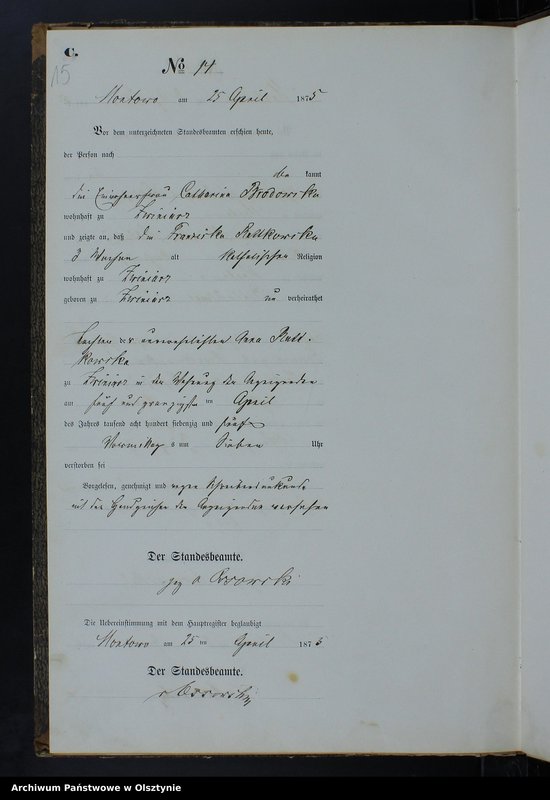 C.
15
No 14
Montowo am 25 April 1875
Vor dem unterzeichneten Standesbeamten erschien heute,
der Person nach
kannt
die Einwohnerfrau Catharina Brodowska
wohnhaft zu Zwiniarz
und zeigte an, daß die Franziska Rutkowska
3 Wochen alt katholischer Religion
wohnhaft zu Zwiniarz
geboren zu Zwiniarz un verheirathet
Tochter der unverehelichten Anna Rutt-
kowska
zu Zwiniarz in der Wohnung der Anzeigenden
am fünf und zwanzigsten ten April
des Jahres tausend acht hundert siebenzig und fünf
Vormittags um Sieben Uhr
verstorben sei
Vorgelesen, genehmigt und wegen Schreibensunkunde
mit dem Handzeichen der Anzeigenden versehen
Der Standesbeamte.
gez Ossowski
Die Uebereinstimmung mit dem Hauptregister beglaubigt
Montowo am 25 ten April 1875
Der Standesbeamte.
Ossowski
Archiwum Państwowe w Olsztynie